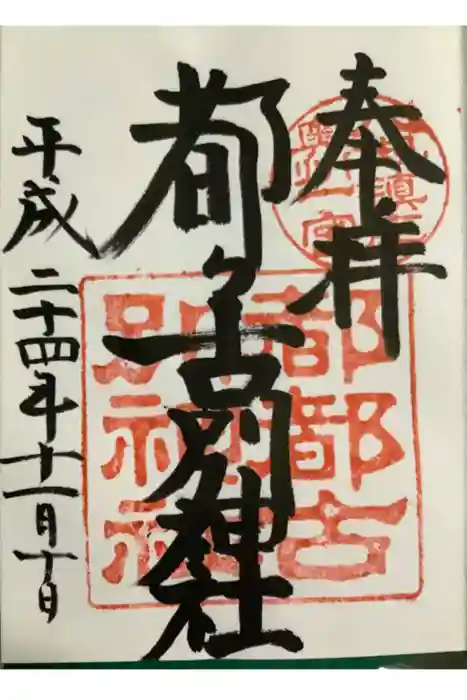 奉拝
都々古別神社
平成二十四年十一月十日
都都古
別神社